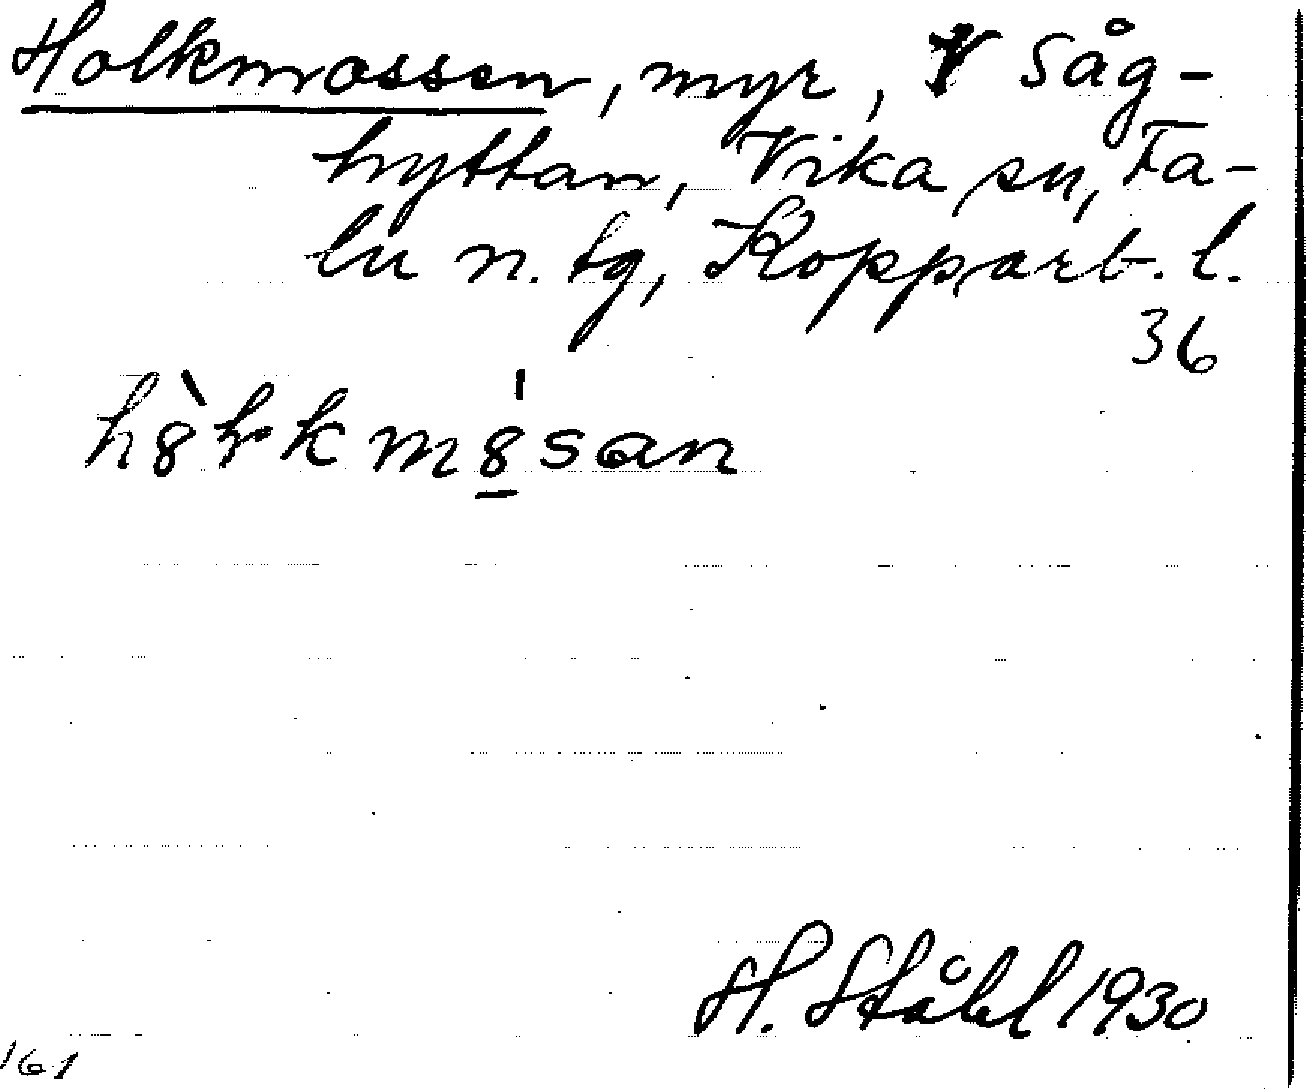 Holkmossen, myr, V Såg-
hyttan, Vika sn, Fa-
lu n. tg, Kopparb. l.
36
H. Ståhl 1930
161